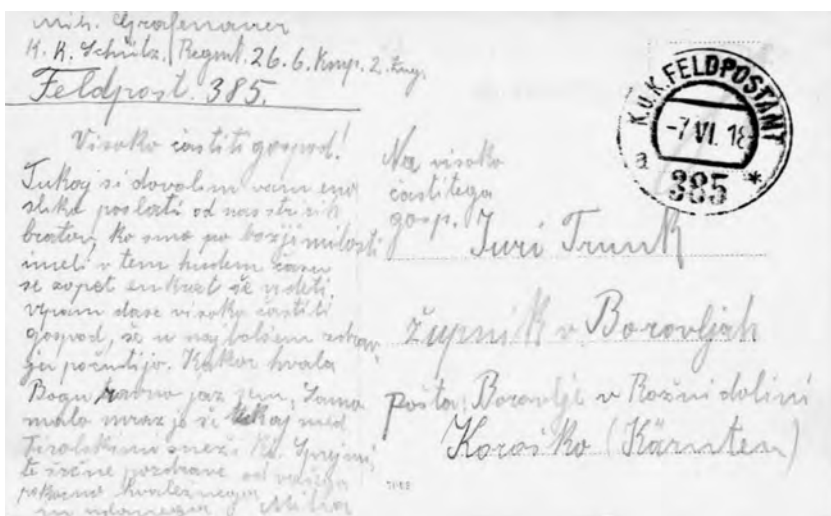 Mih. Grafenauer
K. K. Schütz. Regmt. 26. 6. Kmp. 2. Zug.
Feldpost. 385.
Visoko častiti gospod!
Tukaj si dovolim vam eno
sliko poslati od nas strih
bratov, ko smo po božji milosti
imeli v tem hudem času
se zopet enkrat še videti
vpam da se visoko častiti
gospod, še v najbolšem zdrav
ju počutijo. Kakor hvala
Bogu ravno jaz sem, Samo
malo mraz je še tukaj med
Tirolskimi sneži. Sprejmi
te srčne pozdrave od vašga
pokorno hvaležnega
in udanega Miha
Na visoko
častitega
gosp. Juri Trunk
župnik v Borovljah
pošta: Borovlje v Rožni dolini
Koroško (Kärnten)
K.u.K. FELDPOSTAMT
-7 VI. 18
a 385 *